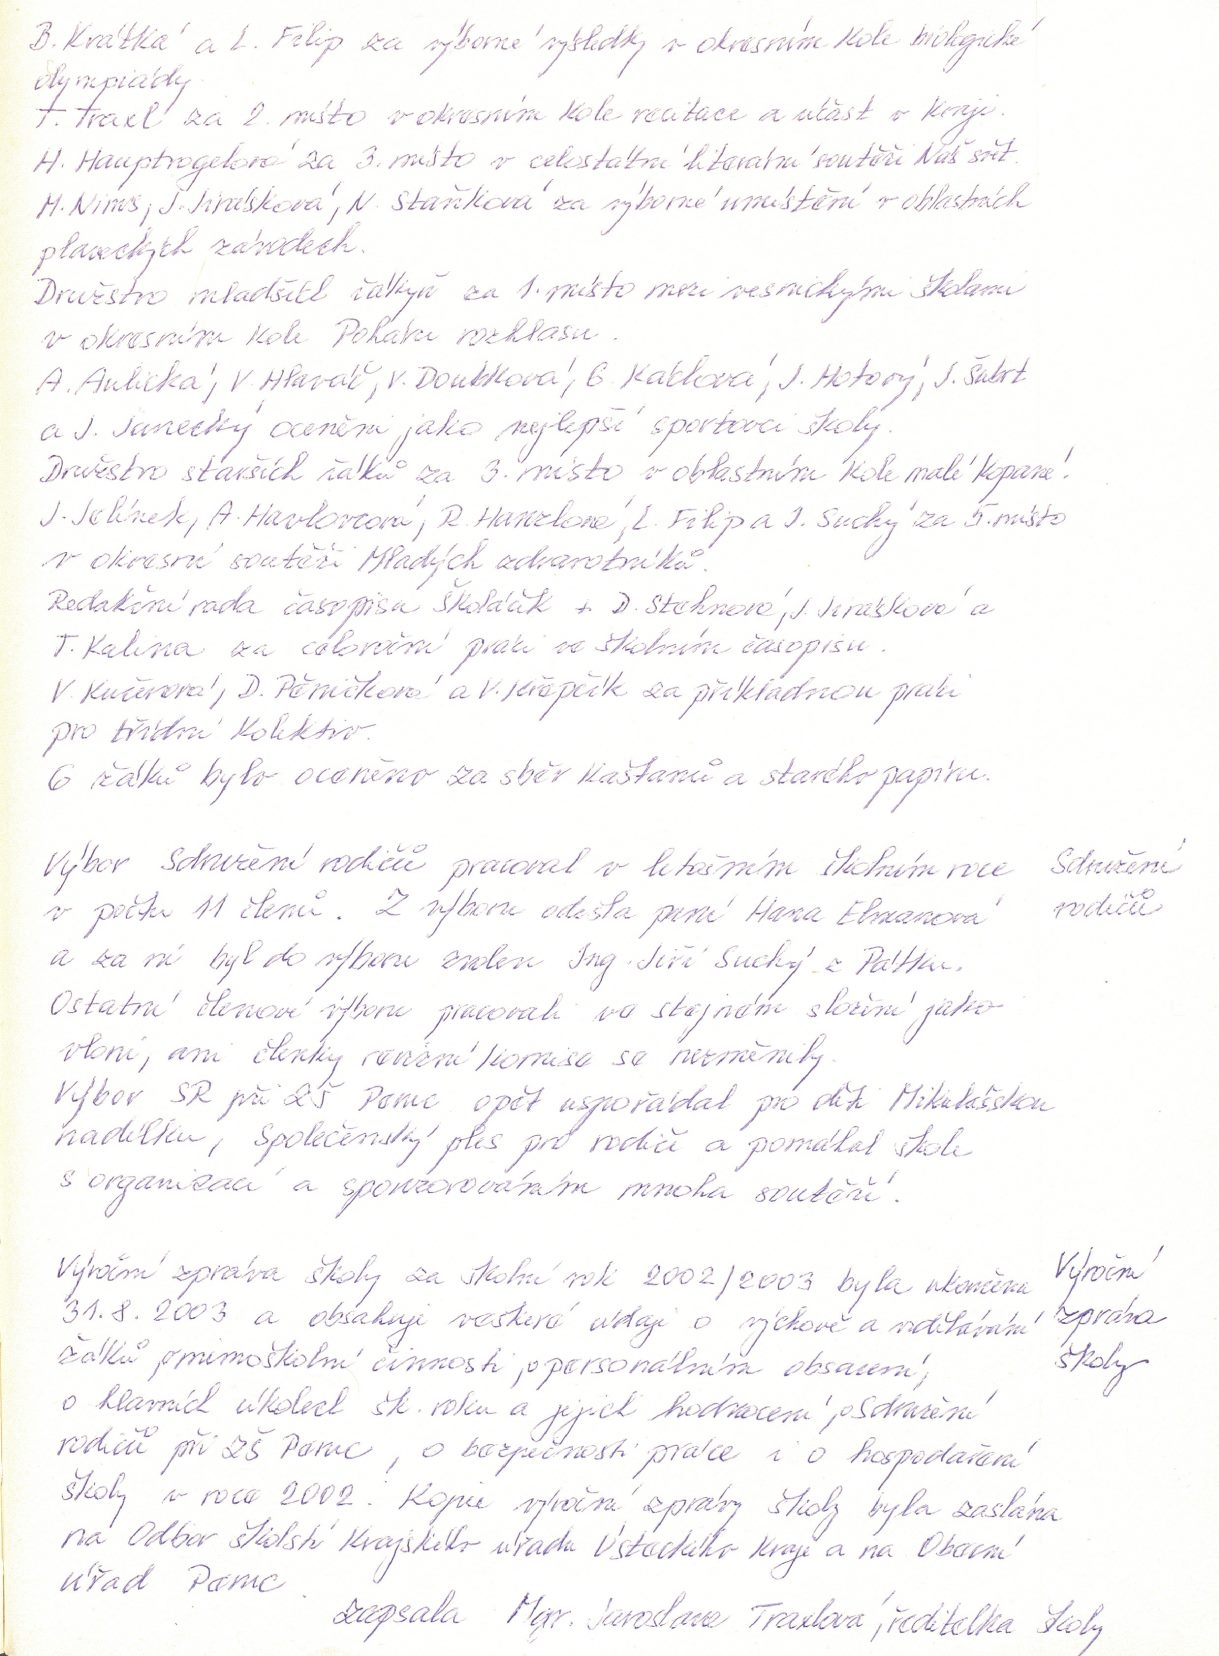 B. Krátká a L. Filip za výborné výsledky v okresním kole biologické
olympiády.
T. Traxl za 2. místo v okresním kole recitace a účast v kraji.
H. Hauptvogelová za 3. místo v celostátní literární soutěži Náš svět.
M. Nims, J. Jirásková, N. Staňková za výborné umístění v oblastních
plaveckých závodech.
Družstvo mladších žákyň za 1. místo mezi vesnickými školami
v okresním kole Poháru rozhlasu.
A. Aulická, V. Hlaváč, V. Doubková, B. Kálalová, J. Hotový, J. Šubrt
a J. Janecký oceněni jako nejlepší sportovci školy.
Družstvo starších žáků za 3. místo v oblastním kole malé kopané.
J. Jelínek, A. Havlovcová, R. Hanzlová, L. Filip a J. Suchý za 5. místo
v okresní soutěži Mladých zdravotníků.
Redakční rada časopisu Školáček + D. Stehnová, J. Jirásková a
T. Kalina za celoroční práci ve školním časopisu.
V. Kučerová, D. Pěničková a V. Křepčík za příkladnou práci
pro třídní kolektiv.
6 žáků bylo oceněno za sběr kaštanů a starého papíru.
Výbor Sdružení rodičů pracoval v letošním školním roce
v počtu 11 členů. Z výboru odešla paní Hana Elmanová
a za ni byl do výboru zvolen Ing. Jiří Suchý z Pátku.
Ostatní členové výboru pracovali ve stejném složení jako
vloni, ani členky revizní komise se nezměnily.
Výbor SR při ZŠ Peruc opět uspořádal pro děti Mikulášskou
nadílku, Společenský ples pro rodiče a pomáhal škole
s organizací a sponzorováním mnoha soutěží.
Sdružení
rodičů
Výroční zpráva školy za školní rok 2002/2003 byla ukončena
31.8.2003 a obsahuje veškeré údaje o výchově a vzdělávání
žáků, o mimoškolní činnosti, o personálním obsazení,
o hlavních úkolech šk. roku a jejich hodnocení, o Sdružení
rodičů při ZŠ Peruc, o bezpečnosti práce i o hospodaření
školy v roce 2002. Kopie výroční zprávy školy byla zaslána
na Odbor školství Krajského úřadu Ústeckého kraje a na Obecní
úřad Peruc.
Výroční
zpráva
školy
zapsala Mgr. Jaroslava Traxlová, ředitelka školy